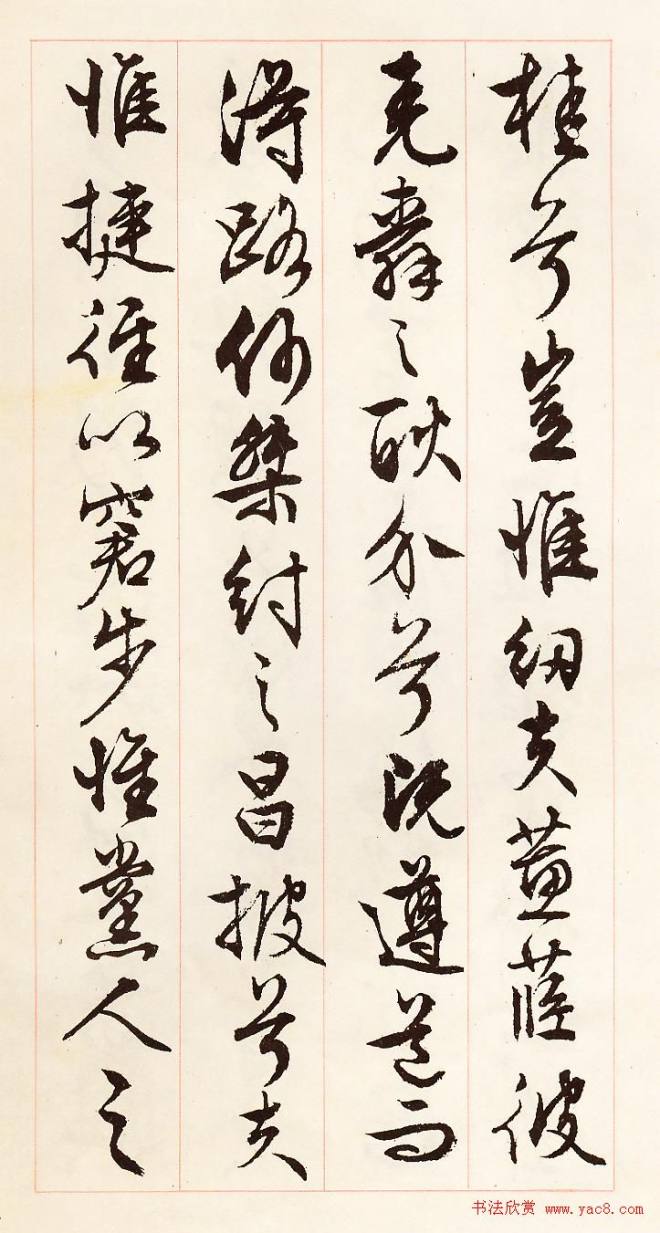 桂兮豈惟紉夫蕙茝彼
堯舜之耿介兮既遵道而
得路何桀紂之昌披兮夫
惟捷徑以窘步惟黨人之
书法欣赏 www.yac8.com